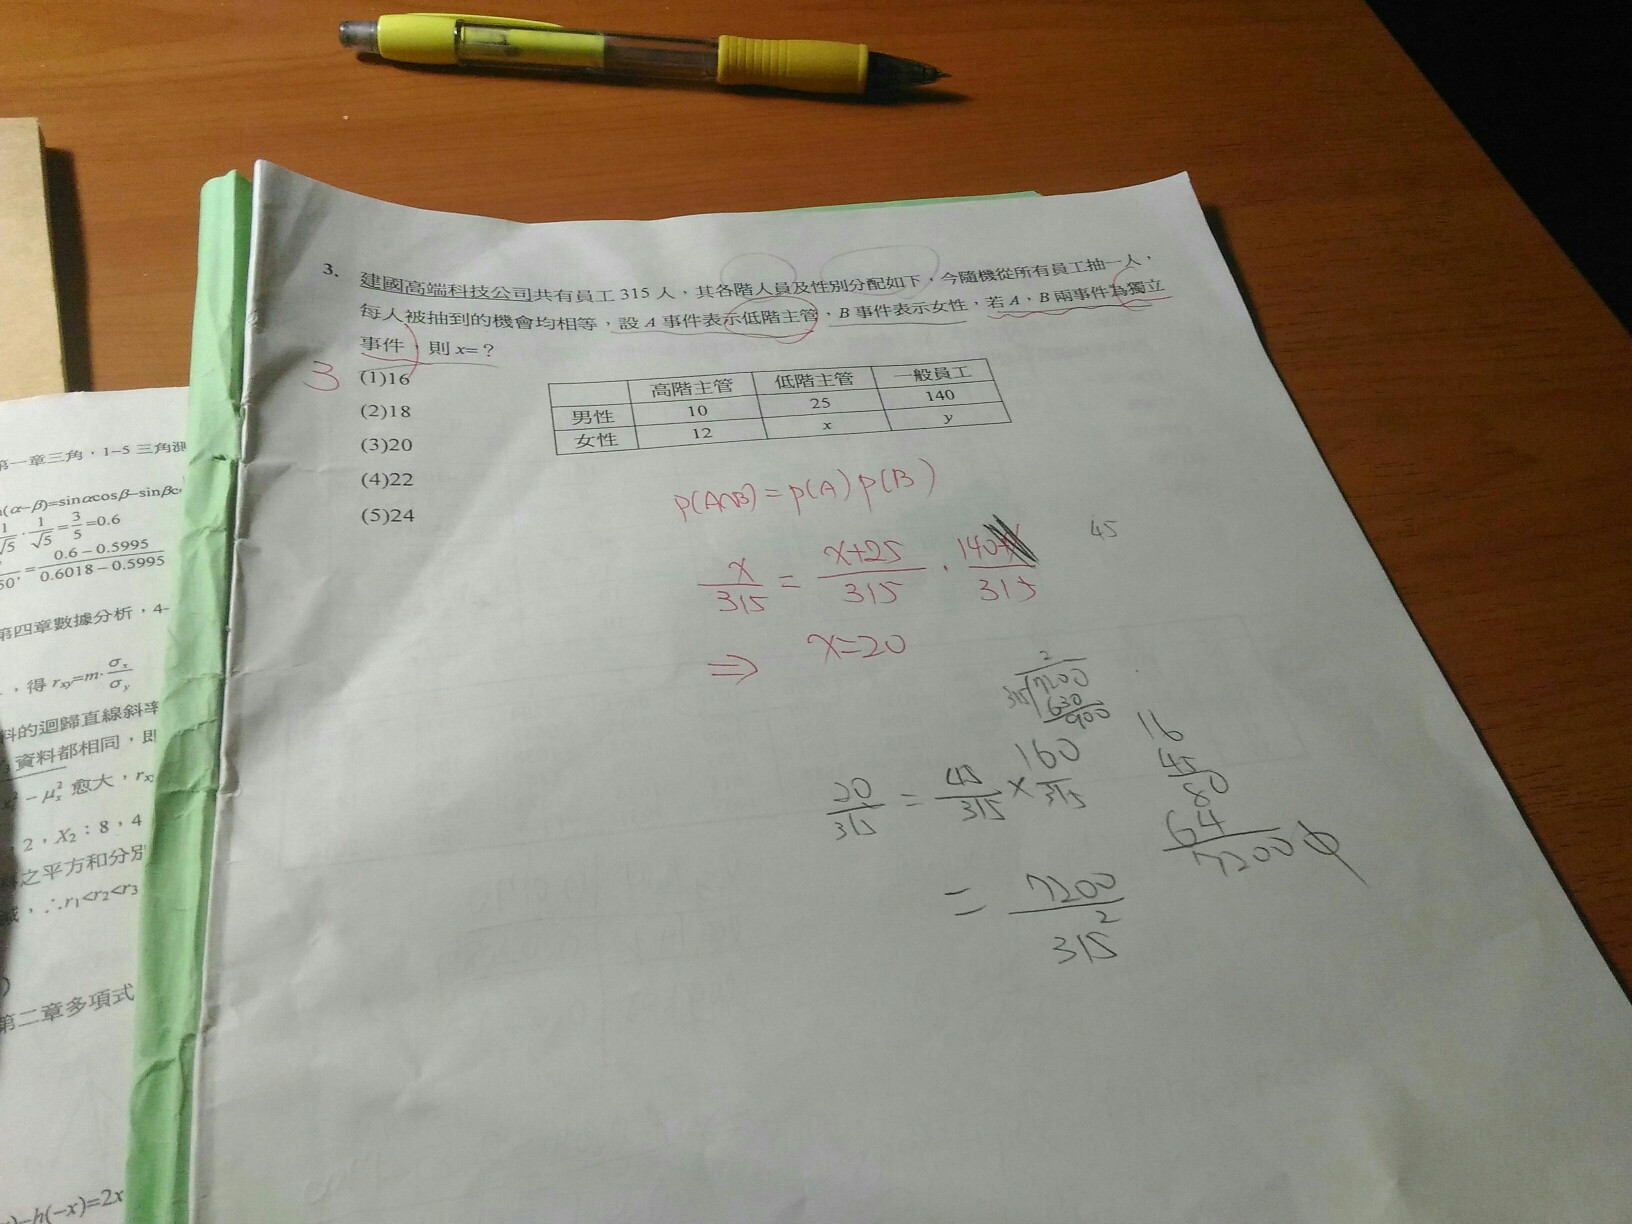 3. 建國高端科技公司共有員工 315 人，其各階人員及性別分配如下，今隨機從所有員工抽一人，
每人被抽到的機會均相等，設 A 事件表示低階主管，B 事件表示女性，若 A，B 兩事件為獨立
事件，則 x=？
3
(1)16
(2)18
(3)20
(4)22
(5)24
高階主管 低階主管 一般員工
男性 10 25 140
女性 12 x y
P(A∩B)=P(A)P(B)
x/315 = x+25/315 · 140/315
45
⇒ x=20
2
315 7200
630
900
20/315 = 45/315 × 160/315
= 7200/315²
16
45
80
64
7200
第一章三角，1-5 三角測
(α−β)=sinαcosβ−sinβc
1/√5 · 1/√5 = 3/5 = 0.6
= 0.6−0.5995/0.6018−0.5995
第四章數據分析，4-
，得 rxy=m·σx/σy
料的迴歸直線斜率
資料都相同，即
− μx² 愈大，rx
2，X₂：8，4
之平方和分別
，∴r₁<r₂<r₃
第二章多項式
−h(−x)=2x